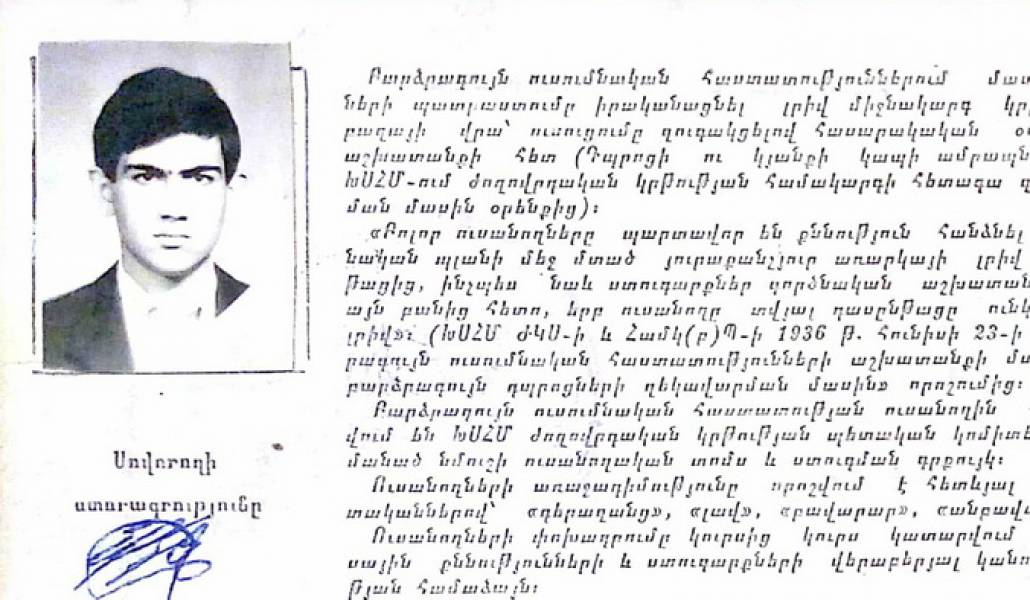 Սովորողի
ստորագրությունը
Բարձրագույն ուսումնական հաստատություններում մաս
ների պատրաստումը իրականացնել լրիվ միջնակարգ կրթ
բազայի վրա՝ ուսուցումը զուգակցելով հասարակական օգ
աշխատանքի հետ (Դպրոցի ու կյանքի կապի ամրապն
ԽՍՀՄ-ում ժողովրդական կրթության համակարգի հետագա զ
ման մասին օրենքից)։
«Բոլոր ուսանողները պարտավոր են քննություն հանձնել
նական պլանի մեջ մտած յուրաքանչյուր առարկայի լրիվ
թացից, ինչպես նաև ստուգարքներ գործնական աշխատան
այն բանից հետո, երբ ուսանողը տվյալ դասընթացը ունկ
լրիվ»։ (ԽՍՀՄ ԺԿՍ-ի և Համկ(բ)Պ-ի 1936 թ. հունիսի 23-ի
րագույն ուսումնական հաստատությունների աշխատանքի մա
բարձրագույն դպրոցների ղեկավարման մասին» որոշումից։
Բարձրագույն ուսումնական հաստատության ուսանողին
վում են ԽՍՀՄ ժողովրդական կրթության պետական կոմիտե
մանած նմուշի ուսանողական տոմս և ստուգման գրքույկ։
Ուսանողների առաջադիմությունը որոշվում է հետևյալ
տականներով՝ «գերազանց», «լավ», «բավարար», «անբավ
Ուսանողների փոխադրումը կուրսից կուրս կատարվում
սային քննությունների և ստուգարքների վերաբերյալ կանո
թյան համաձայն։